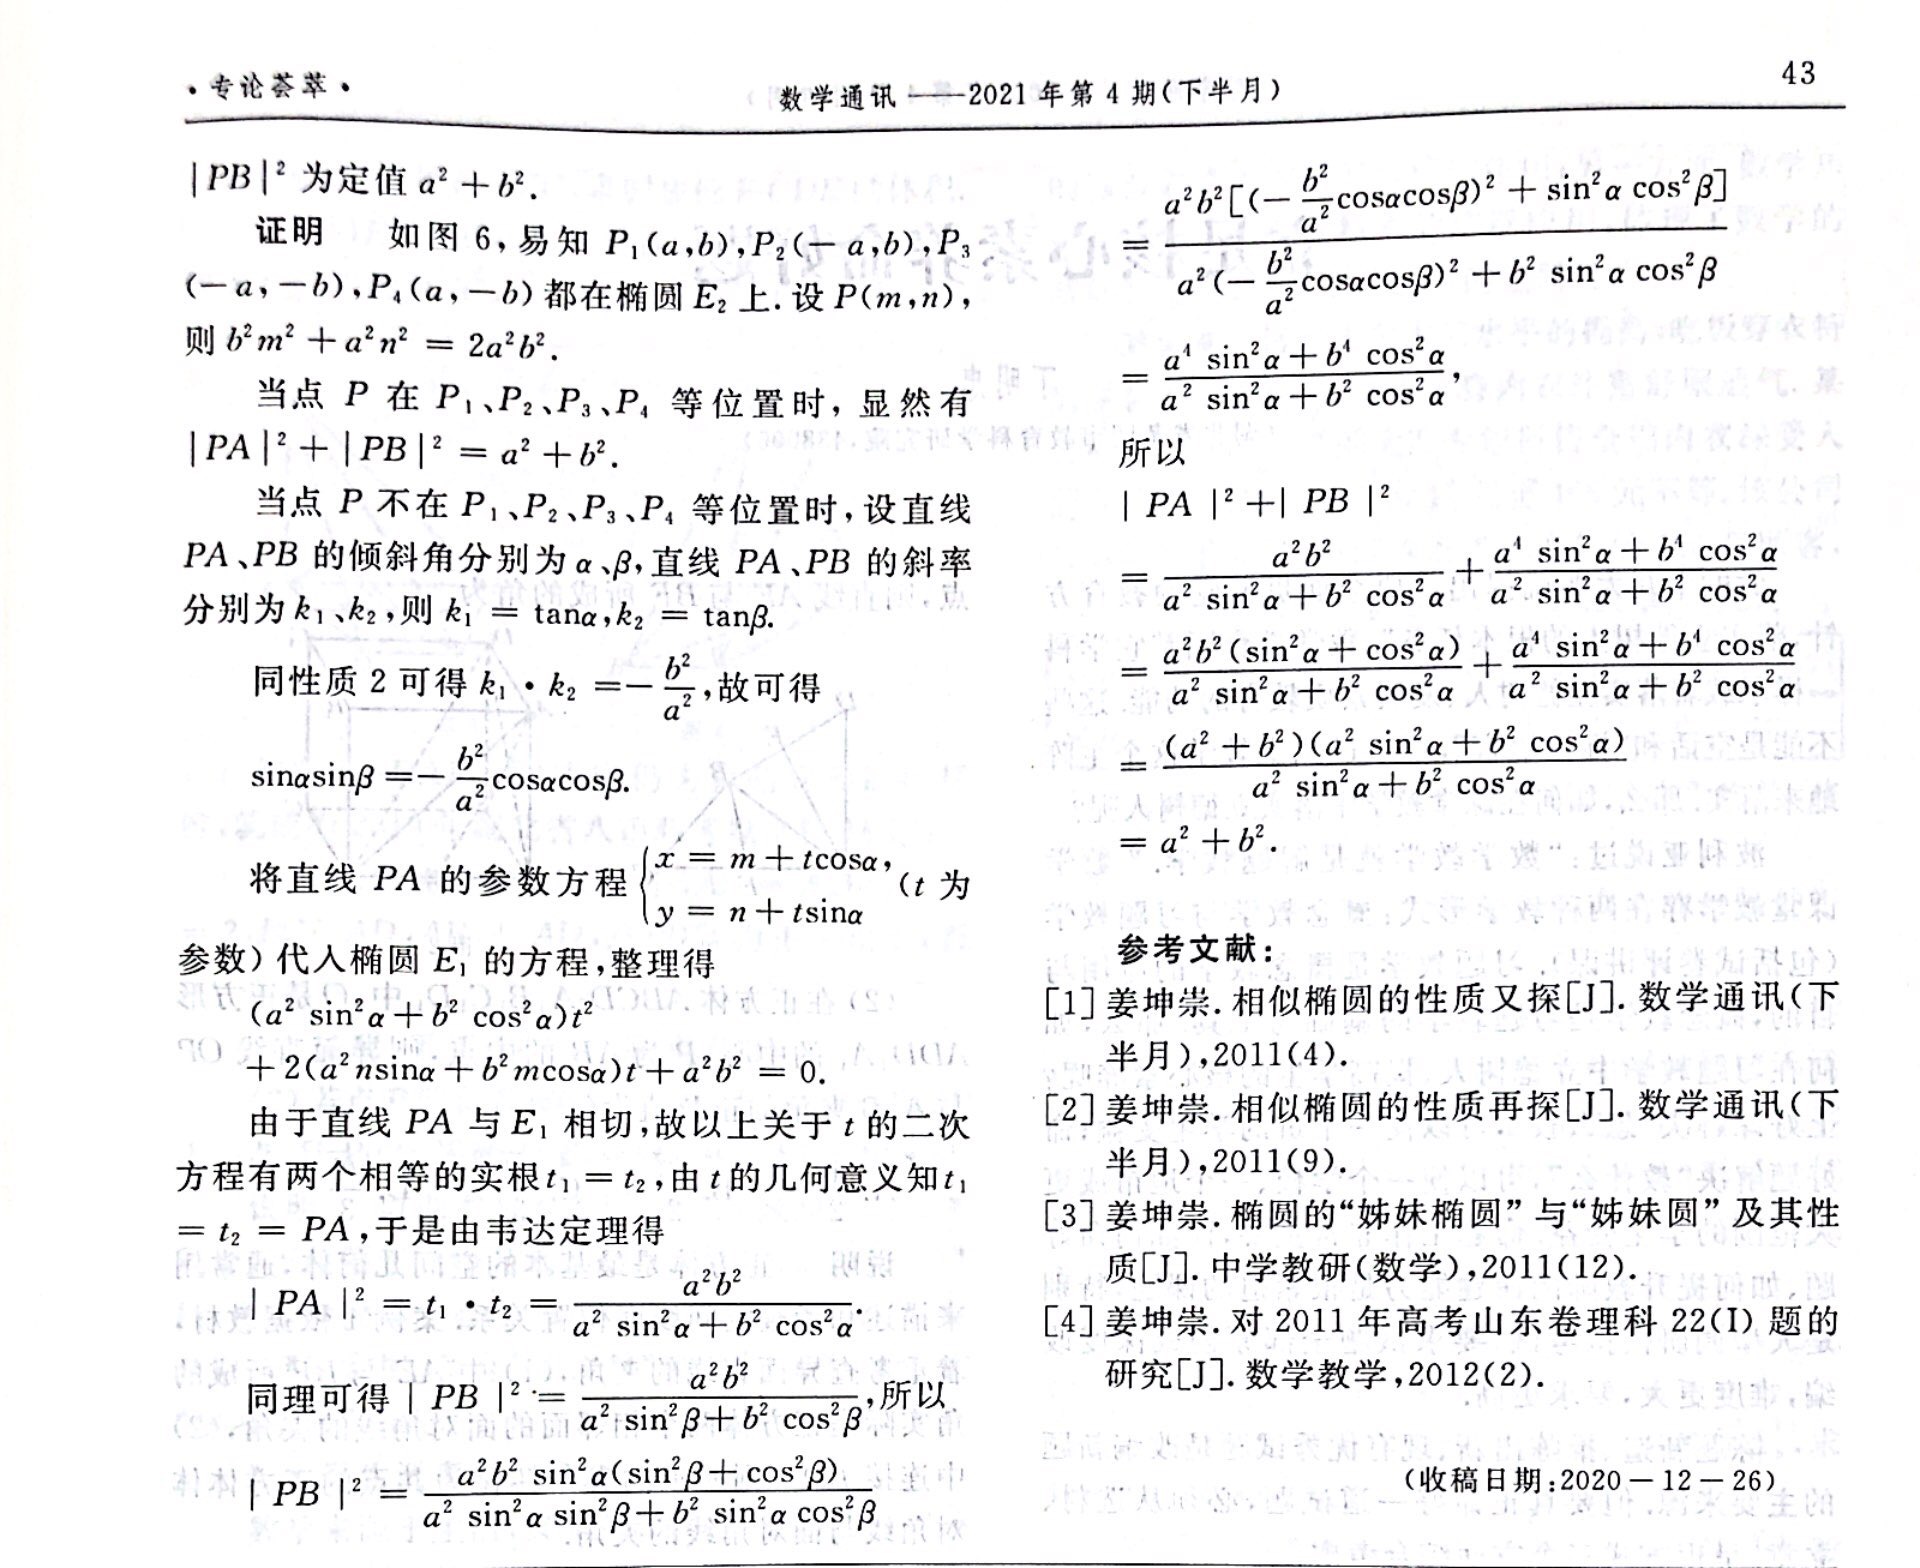 ·专论荟萃·
数学通讯——2021年第4期(下半月)
43
|PB|² 为定值 a²+b².
证明 如图6,易知 P₁(a,b),P₂(-a,b),P₃
(-a,-b),P₄(a,-b)都在椭圆E₂上.设P(m,n),
则 b²m²+a²n² = 2a²b².
当点 P 在 P₁、P₂、P₃、P₄ 等位置时,显然有
|PA|²+|PB|² = a²+b².
当点 P 不在 P₁、P₂、P₃、P₄ 等位置时,设直线
PA、PB 的倾斜角分别为α、β,直线 PA、PB 的斜率
分别为k₁、k₂,则 k₁ = tanα,k₂ = tanβ.
同性质2可得 k₁·k₂ =-b²/a²,故可得
sinαsinβ=-b²/a² cosαcosβ.
将直线 PA 的参数方程{x = m+tcosα, y = n+tsinα (t 为
参数)代入椭圆 E₁ 的方程,整理得
(a² sin²α+b² cos²α)t²
+2(a²nsinα+b²mcosα)t+a²b² = 0.
由于直线 PA 与E₁ 相切,故以上关于 t 的二次
方程有两个相等的实根t₁ = t₂,由 t 的几何意义知t₁
= t₂ = PA,于是由韦达定理得
|PA|² = t₁·t₂ = a²b²/(a² sin²α+b² cos²α).
同理可得|PB|² = a²b²/(a² sin²β+b² cos²β),所以
|PB|² = a²b² sin²α(sin²β+cos²β)/(a² sin²α sin²β+b² sin²α cos²β)
= a²b²[(-b²/a² cosαcosβ)²+sin²α cos²β]/(a²(-b²/a² cosαcosβ)²+b² sin²α cos²β)
= (a⁴ sin²α+b⁴ cos²α)/(a² sin²α+b² cos²α),
所以
|PA|²+|PB|²
= a²b²/(a² sin²α+b² cos²α)+(a⁴ sin²α+b⁴ cos²α)/(a² sin²α+b² cos²α)
= a²b²(sin²α+cos²α)/(a² sin²α+b² cos²α)+(a⁴ sin²α+b⁴ cos²α)/(a² sin²α+b² cos²α)
= (a²+b²)(a² sin²α+b² cos²α)/(a² sin²α+b² cos²α)
= a²+b².
参考文献:
[1]姜坤崇.相似椭圆的性质又探[J].数学通讯(下
半月),2011(4).
[2]姜坤崇.相似椭圆的性质再探[J].数学通讯(下
半月),2011(9).
[3]姜坤崇.椭圆的“姊妹椭圆”与“姊妹圆”及其性
质[J].中学教研(数学),2011(12).
[4]姜坤崇.对2011年高考山东卷理科22(I)题的
研究[J].数学教学,2012(2).
(收稿日期:2020-12-26)